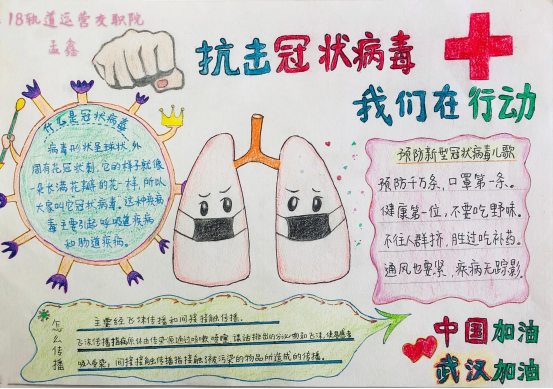 18轨道运营交职院
孟鑫
抗击冠状病毒
我们在行动
什么是冠状病毒
病毒形状呈球状,外
周有花冠状刺,它的样子就像
一朵长满花瓣的花一样,所以
大家叫它冠状病毒。这种疾病
毒主要引起呼吸道疾病
和肠道疾病。
预防新型冠状病毒儿歌
预防千万条,口罩第一条。
健康第一位,不要吃野味。
不往人群挤,胜过吃补药。
通风也要紧,疾病无踪影。
怎么传播
主要经飞沫传播和间接接触传播.
飞沫传播指病原体由传染源通过咳嗽 喷嚏 谈话排出的分泌物和飞沫,使易感者
吸入感染,间接接触传播指接触被污染的物品所造成的传播。
中国加油
武汉加油